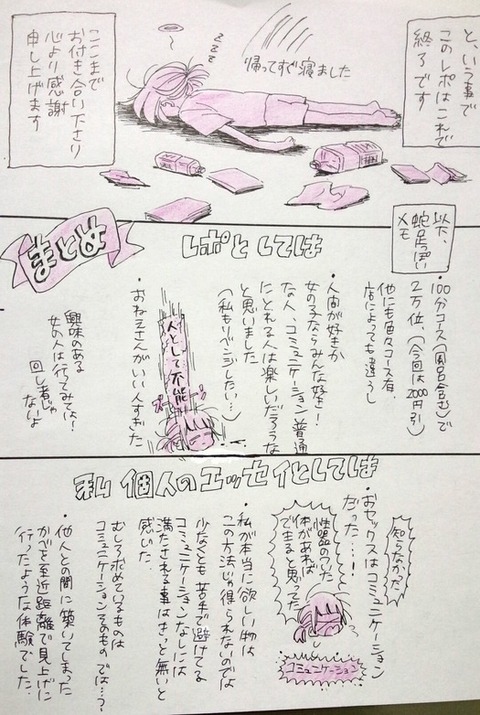 と、いう事で
このレポはこれで
終了です
帰ってすぐ寝ました
zzz
ここまで
お付き合い下さり
心より感謝
申し上げます
以下、
蛇足っぽい
メモ
まとめ
レポとしては
・100分コース(風呂含む)で
2万位、(今回は2000円引)
他にも色々コース有、
店によっても違うし
・人間が好きか
女の子ならみんな好き!
な人、コミュニケーション普通
にとれる人は楽しいだろうな
と思いました。
(私もリベンジしたい…)
人として不能
・おねえさんがいい人すぎた
興味のある
女の人は行ってみては!
回し者じゃ
ないよ
私個人のエッセイとしては
知らなかった
・おセックスはコミュニケーション
だった…!
性器のついた
体があれば
できると思ってた
コミュニケーション
・私が本当に欲しい物は
この方法じゃ得られないのでは
少なくとも苦手で避けてる
コミュニケーションなしには
満たされる事はきっと無いと
感じた。
むしろ求めているものは
コミュニケーションそのものでは…?
・他人との間に築いてしまった
かべを至近距離で見上げに
行ったような体験でした…